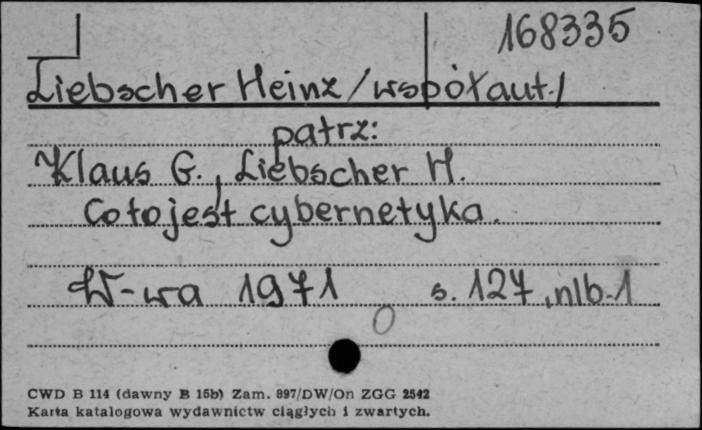 168335
Liebscher Heinz /współaut./
patrz:
Klaus G., Liebscher H.
Co to jest cybernetyka.
W-wa 1971 s. 127, nlb. 1
CWD B 114 (dawny B 15b) Zam. 897/DW/On ZGG 2542
Karta katalogowa wydawnictw ciągłych i zwartych.